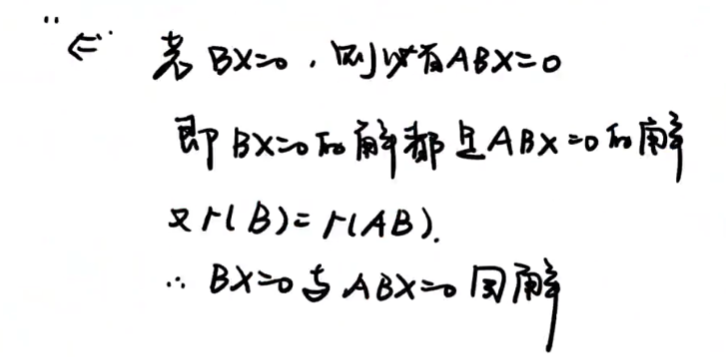 "⇐" 若 BX=0，则必有ABX=0
即 BX=0的解都是ABX=0的解
又 r(B)=r(AB).
∴ BX=0与ABX=0同解